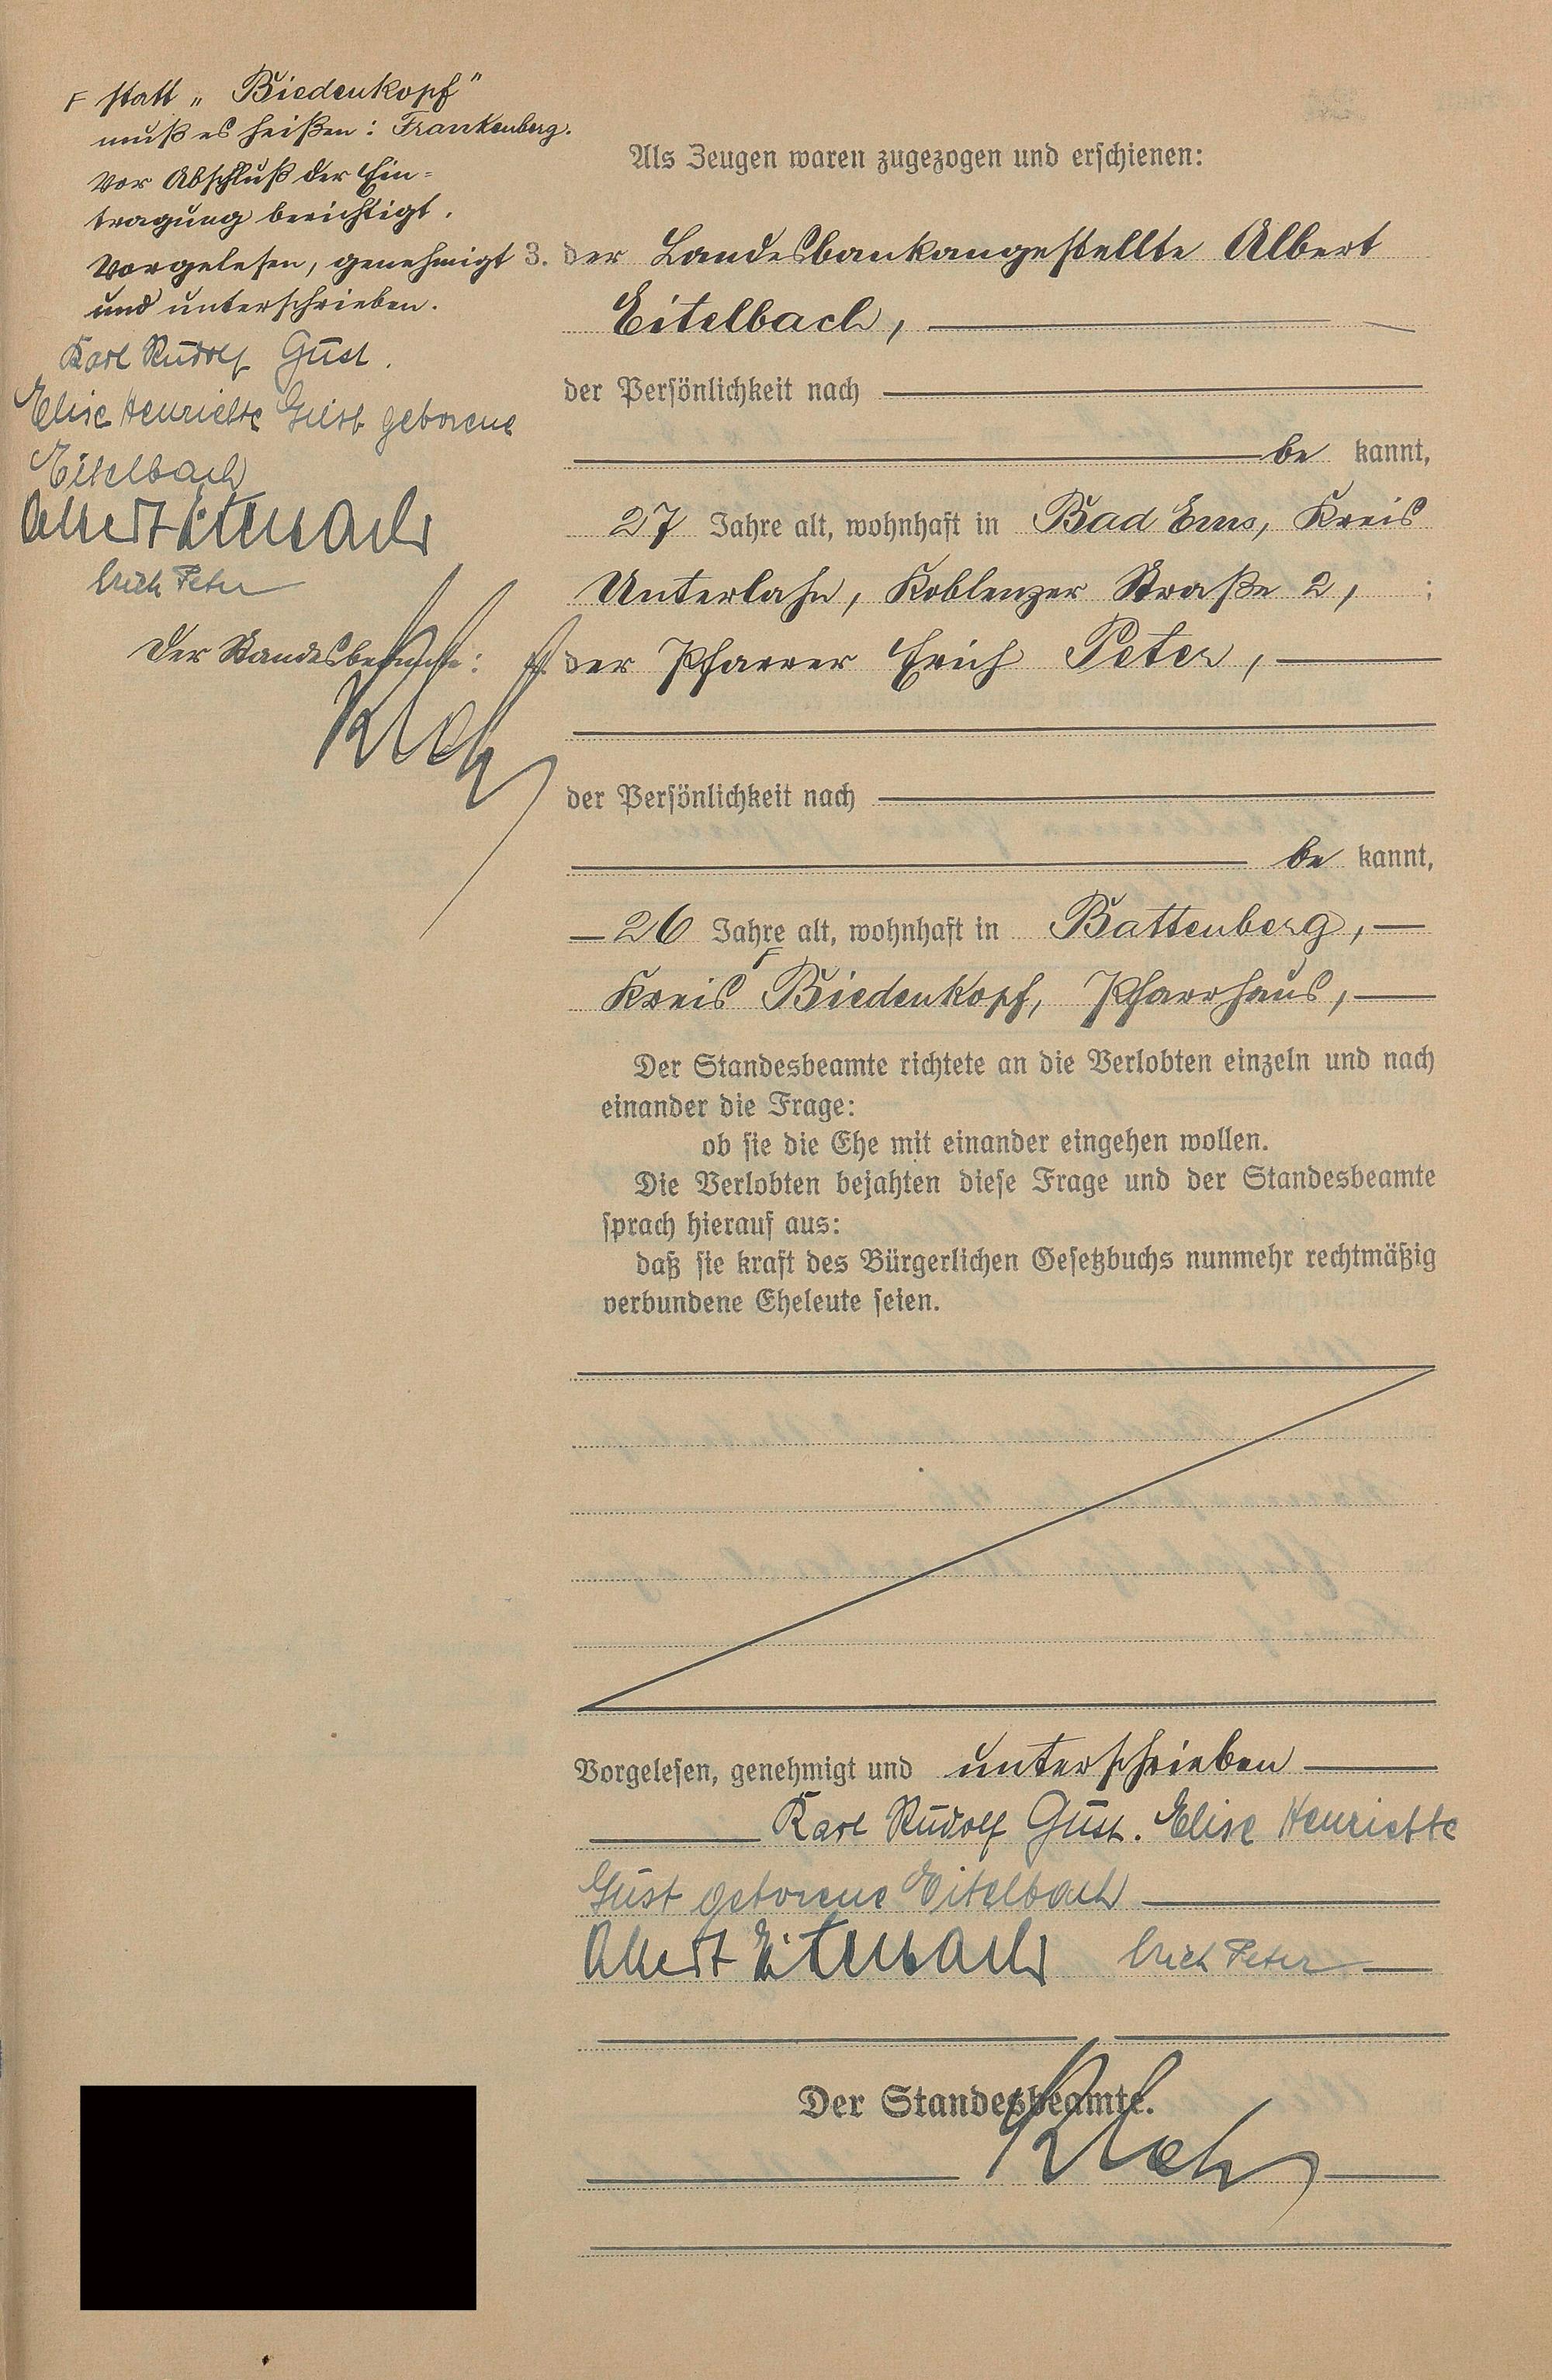 F statt „Biedenkopf"
muß es heißen: Frankenberg.
Vor Abschluß der Ein=
tragung berichtigt.
Vorgelesen, genehmigt
und unterschrieben.
Karl Rudolf Gust.
Elise Henriette Gust geborene
Eitelbach
Albert Eitelbach
Erich Peter
Der Standesbeamte:
Als Zeugen waren zugezogen und erschienen:
3. der Landesbankangestellte Albert
Eitelbach,
der Persönlichkeit nach
be kannt,
27 Jahre alt, wohnhaft in Bad Ems, Kreis
Unterlahn, Koblenzer Straße 2, ;
4. der Pfarrer Erich Peter,
der Persönlichkeit nach
be kannt,
26 Jahre alt, wohnhaft in Battenberg,
Kreis F Biedenkopf, Pfarrhaus,
Der Standesbeamte richtete an die Verlobten einzeln und nach
einander die Frage:
ob sie die Ehe mit einander eingehen wollen.
Die Verlobten bejahten diese Frage und der Standesbeamte
sprach hierauf aus:
daß sie kraft des Bürgerlichen Gesetzbuchs nunmehr rechtmäßig
verbundene Eheleute seien.
Vorgelesen, genehmigt und unterschrieben
Karl Rudolf Gust. Elise Henriette
Gust geborene Eitelbach
Albert Eitelbach Erich Peter
Der Standesbeamte.